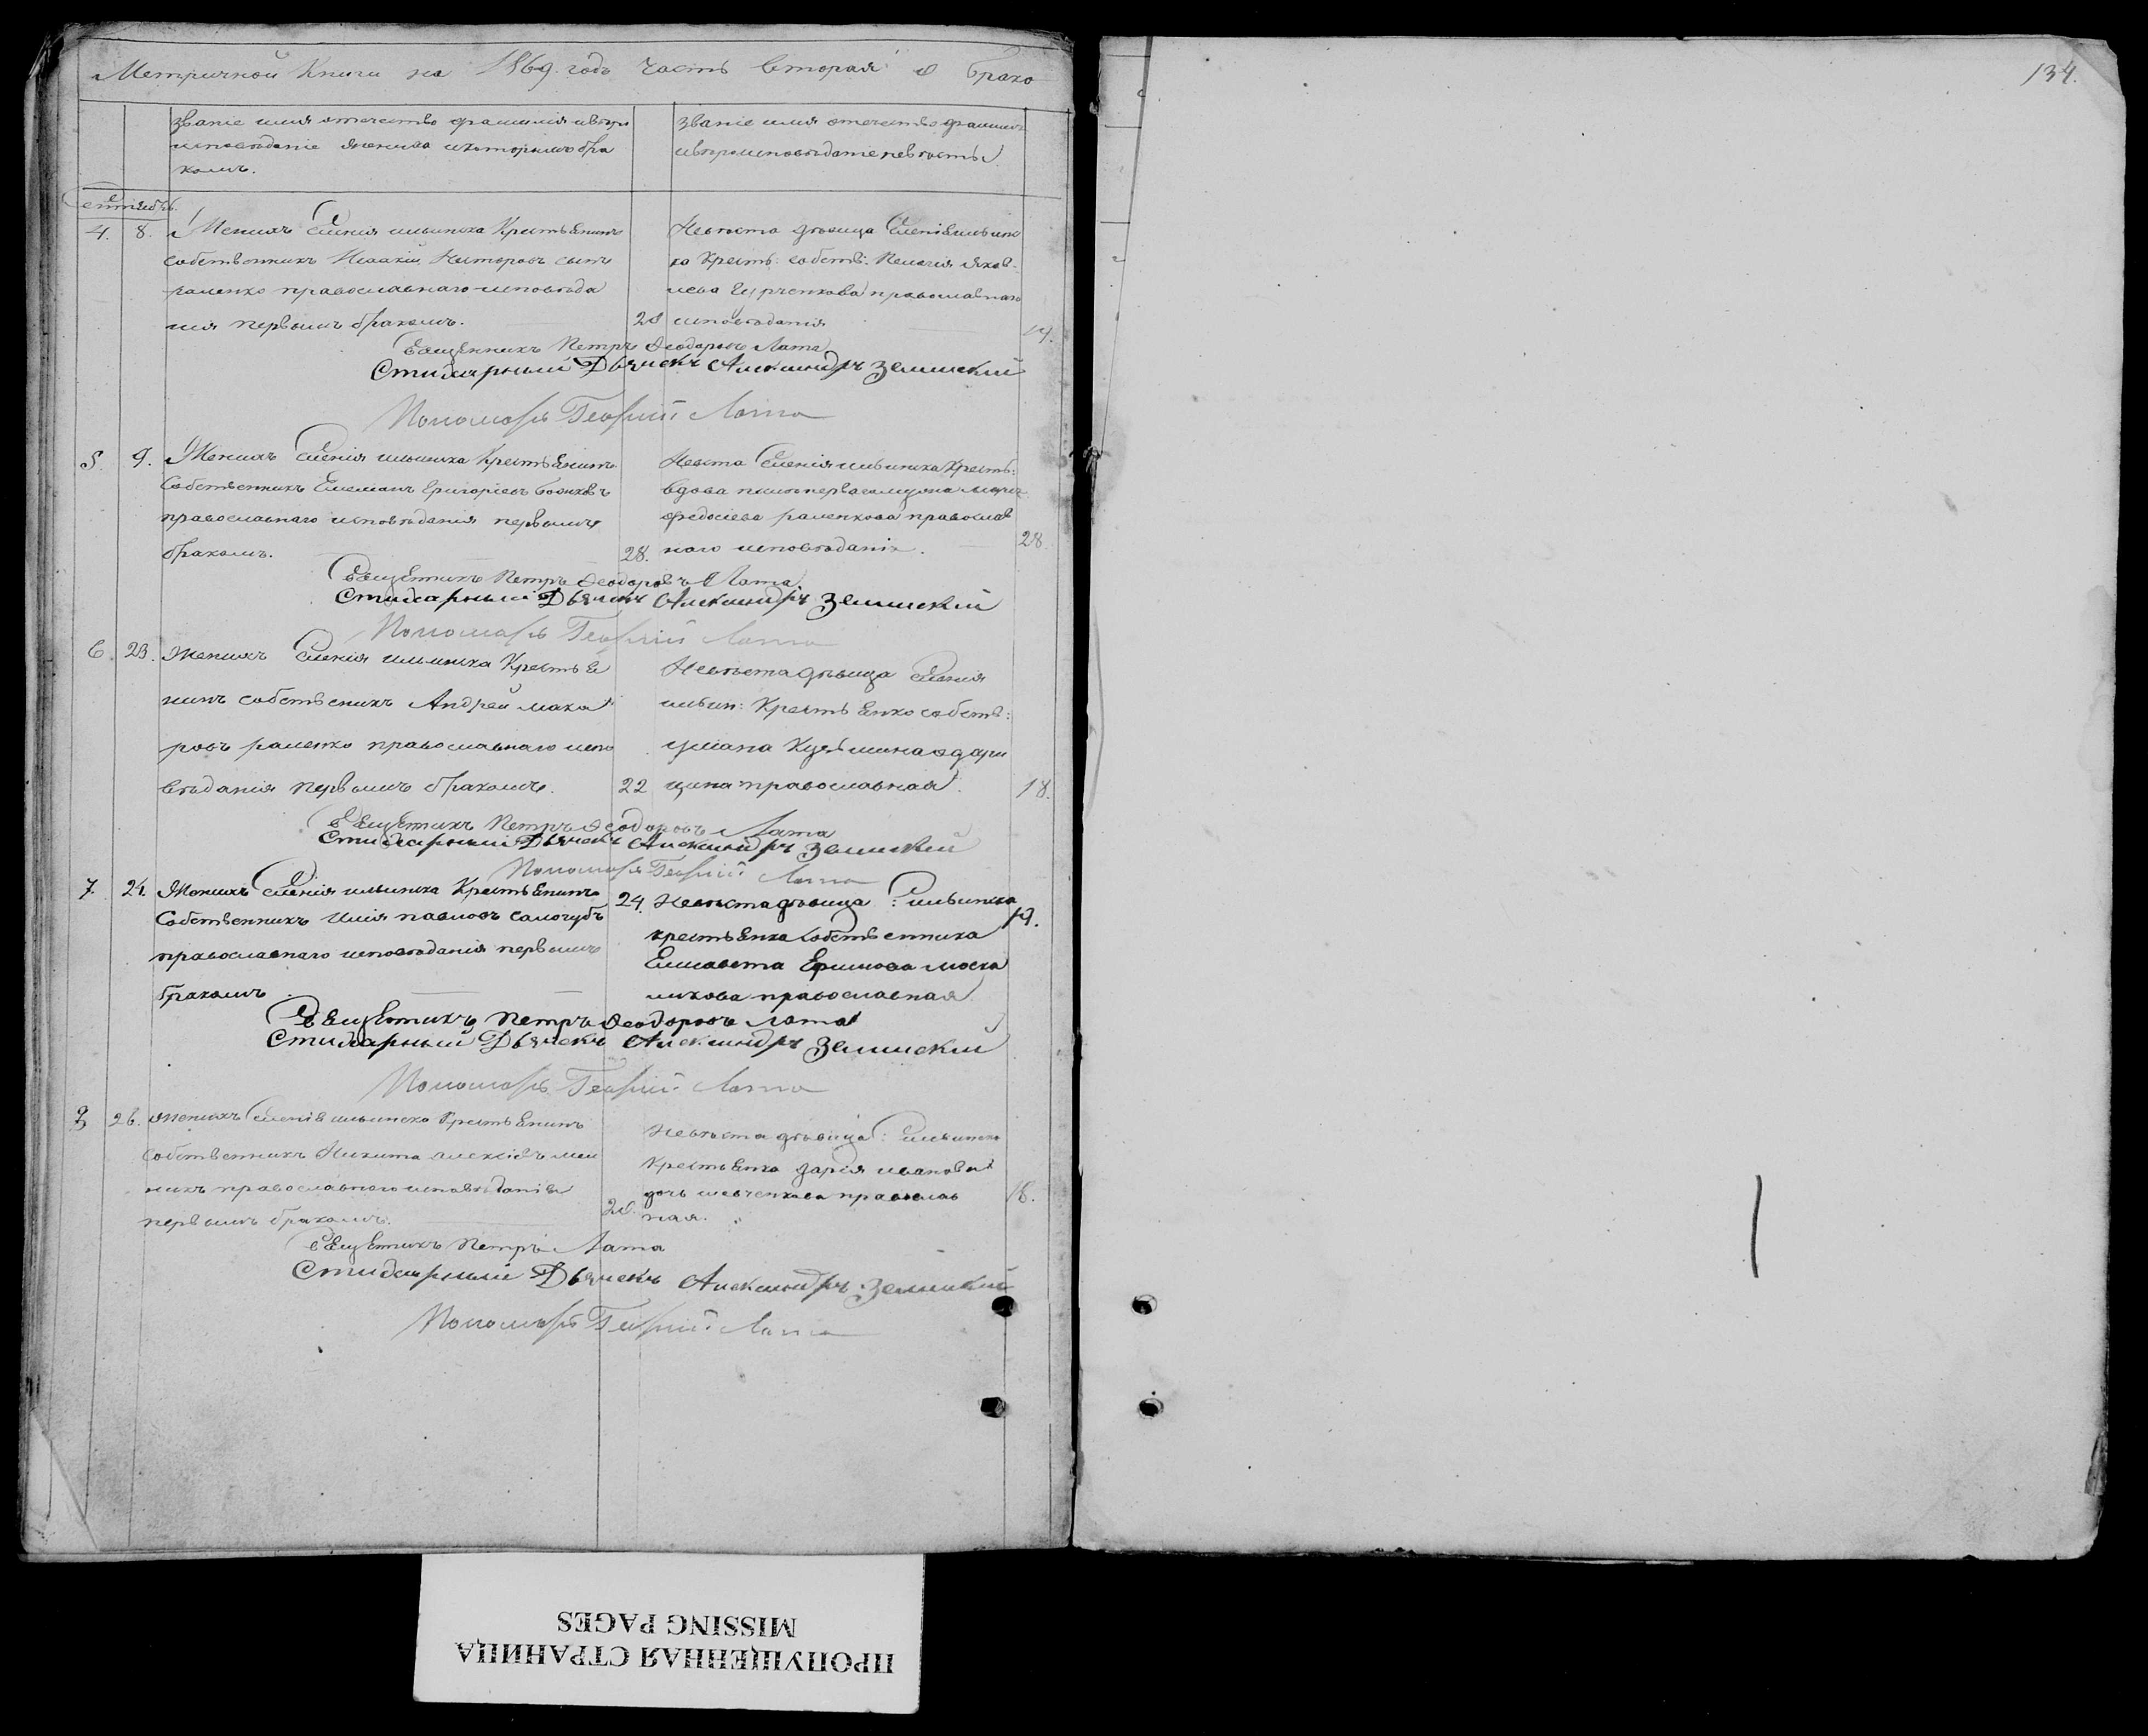 Метричной Книги на 1869. годъ часть вторая о брако
134.
званіе имя отечество фамилія и
исповѣданіе жениха и которымъ бра
комъ.
званіе имя отечество фамилія
исповѣданіе невѣсты
Сентябрь.
4. 8. Женихъ Селенія ильинска Крестьянинъ
собственникъ Исаакій Несторовъ сынъ
раленко православнаго исповѣда
нія первымъ бракомъ. 20
Невѣста дѣвица Селенія ильинс
ка Крест: собств: Пелагія яков
лева православнаго
исповѣданія 19.
Священникъ Петръ Ѳеодоровъ Лата
Стихарный Дьячекъ Александръ Зелинский
Пономарь Георгій Лата
5. 9. Женихъ Селенія ильинска Крестьянинъ
Собственникъ Емелианъ Григоріевъ
православнаго исповѣданія первымъ
бракомъ. 28.
Невѣста Селенія ильинска Крестъ:
вдова после перваго мужа
федосіева раленкова православ
наго исповѣданія. 28
Священникъ Петръ Ѳеодоровъ Лата
Стихарный Дьячекъ Александръ Зелинский
Пономарь Георгій Лата
6. 23. Женихъ Селенія ильинска Крестья
нинъ собственникъ Андрей мака
ровъ раленко православнаго испо
вѣданія первымъ бракомъ. 22
Невѣста дѣвица Селенія
ильин: Крестьянка собств:
Кузьмина
православная. 18.
Священникъ Петръ Ѳеодоровъ Лата
Стихарный Дьячекъ Александръ Зелинский
Пономарь Георгій Лата
7. 24. Женихъ Селенія ильинска Крестьянинъ 24.
Собственникъ Илія павловъ самогубъ
православнаго исповѣданія первымъ
бракомъ.
Невѣста дѣвица С: ильинска 19.
крестьянка собственника
Елисавета Ефимова моска
ликова православная
Священникъ Петръ Ѳеодоровъ Лата
Стихарный Дьячекъ Александръ Зелинский
Пономарь Георгій Лата
8 26. Женихъ Селенія ильинска Крестьянинъ
собственникъ Никита алексіевъ
православнаго исповѣданія
первымъ бракомъ. 20.
Невѣста дѣвица С: ильинска
Крестьянка дарія иванова
дочь шевченкова православ 18.
ная.
Священникъ Петръ Лата
Стихарный Дьячекъ Александръ Зелинский
Пономарь Георгій Лата
ПРОПУЩЕННАЯ СТРАНИЦА
MISSING PAGES